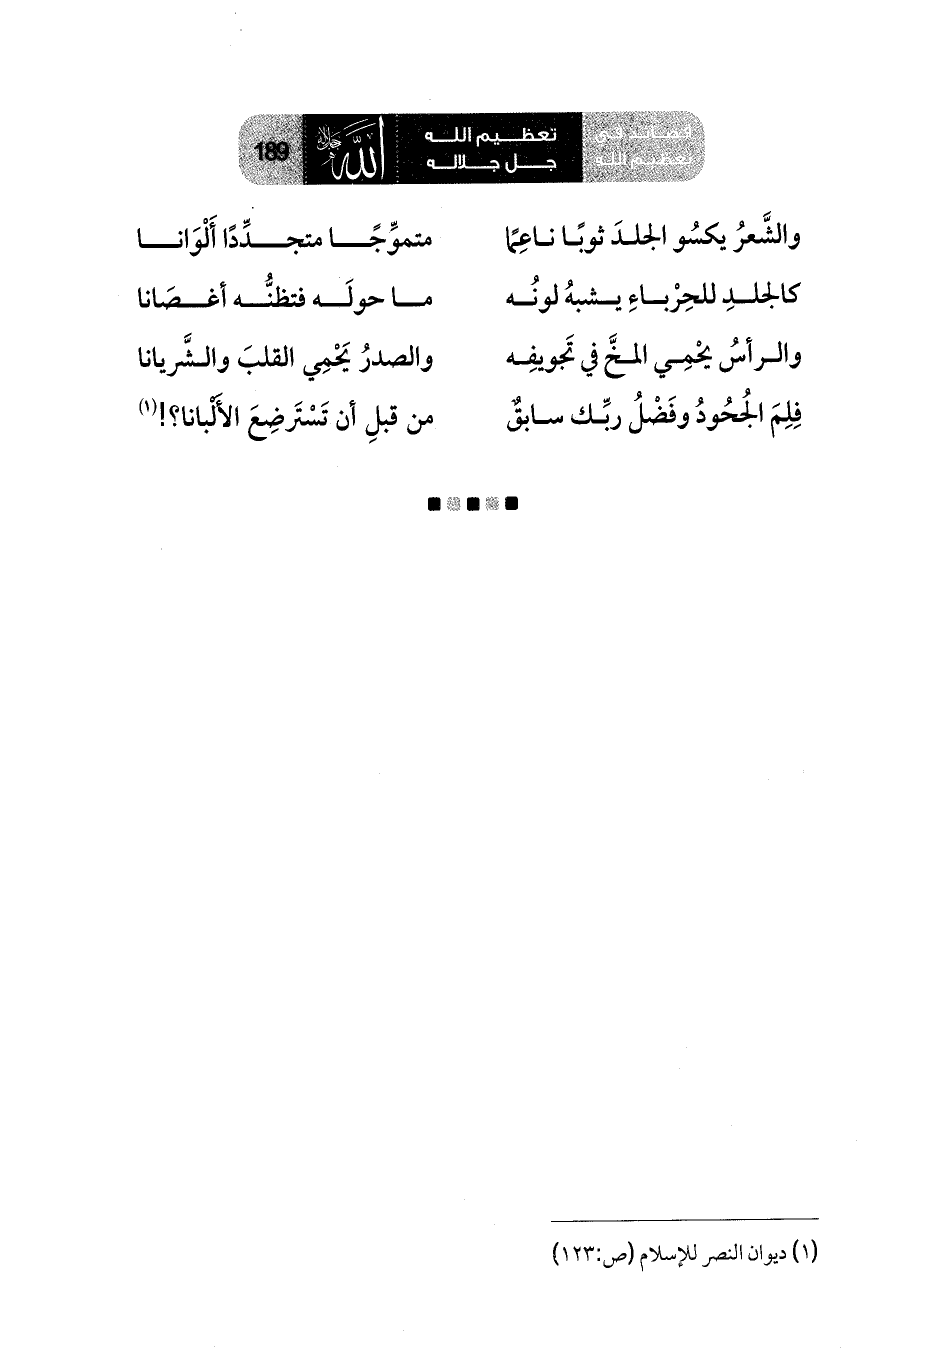 قصائد في تعظيم الله
تعظيم الله جل جلاله
الله جل جلاله
189
والشَّعرُ يكسُو الجلدَ ثوبًا ناعِمًا متموِّجًا متجدِّدًا أَلْوَانا
كالجلدِ للحِرْباءِ يشبهُ لونُه ما حولَه فتظنُّه أغصَانا
والرأسُ يحْمِي المخَّ في تَجويفِه والصدرُ يَحْمِي القلبَ والشَّريانا
فلِمَ الجُحُودُ وفَضْلُ ربِّك سابقٌ من قبلِ أن تَسْتَرضِعَ الأَلْبانا؟!(١)
(١) ديوان النصر للإسلام (ص:١٢٣)